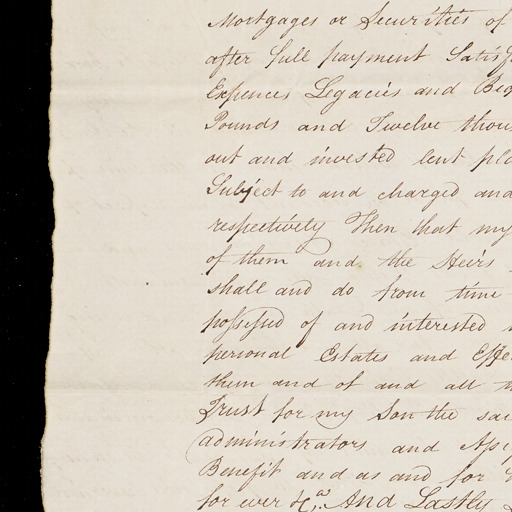 Mortgages or Securities of
after full payment Satisf
Expences Legacies and Beq
Pounds and Twelve thous
out and invested lent pla
Subject to and charged and
respectively Then that my
of them and the Heirs
shall and do from time
possessed of and interested
personal Estates and Effe
them and of and all
Trust for my Son the sai
administrators and Assi
Benefit and as and for
for ever &c. And Lastly